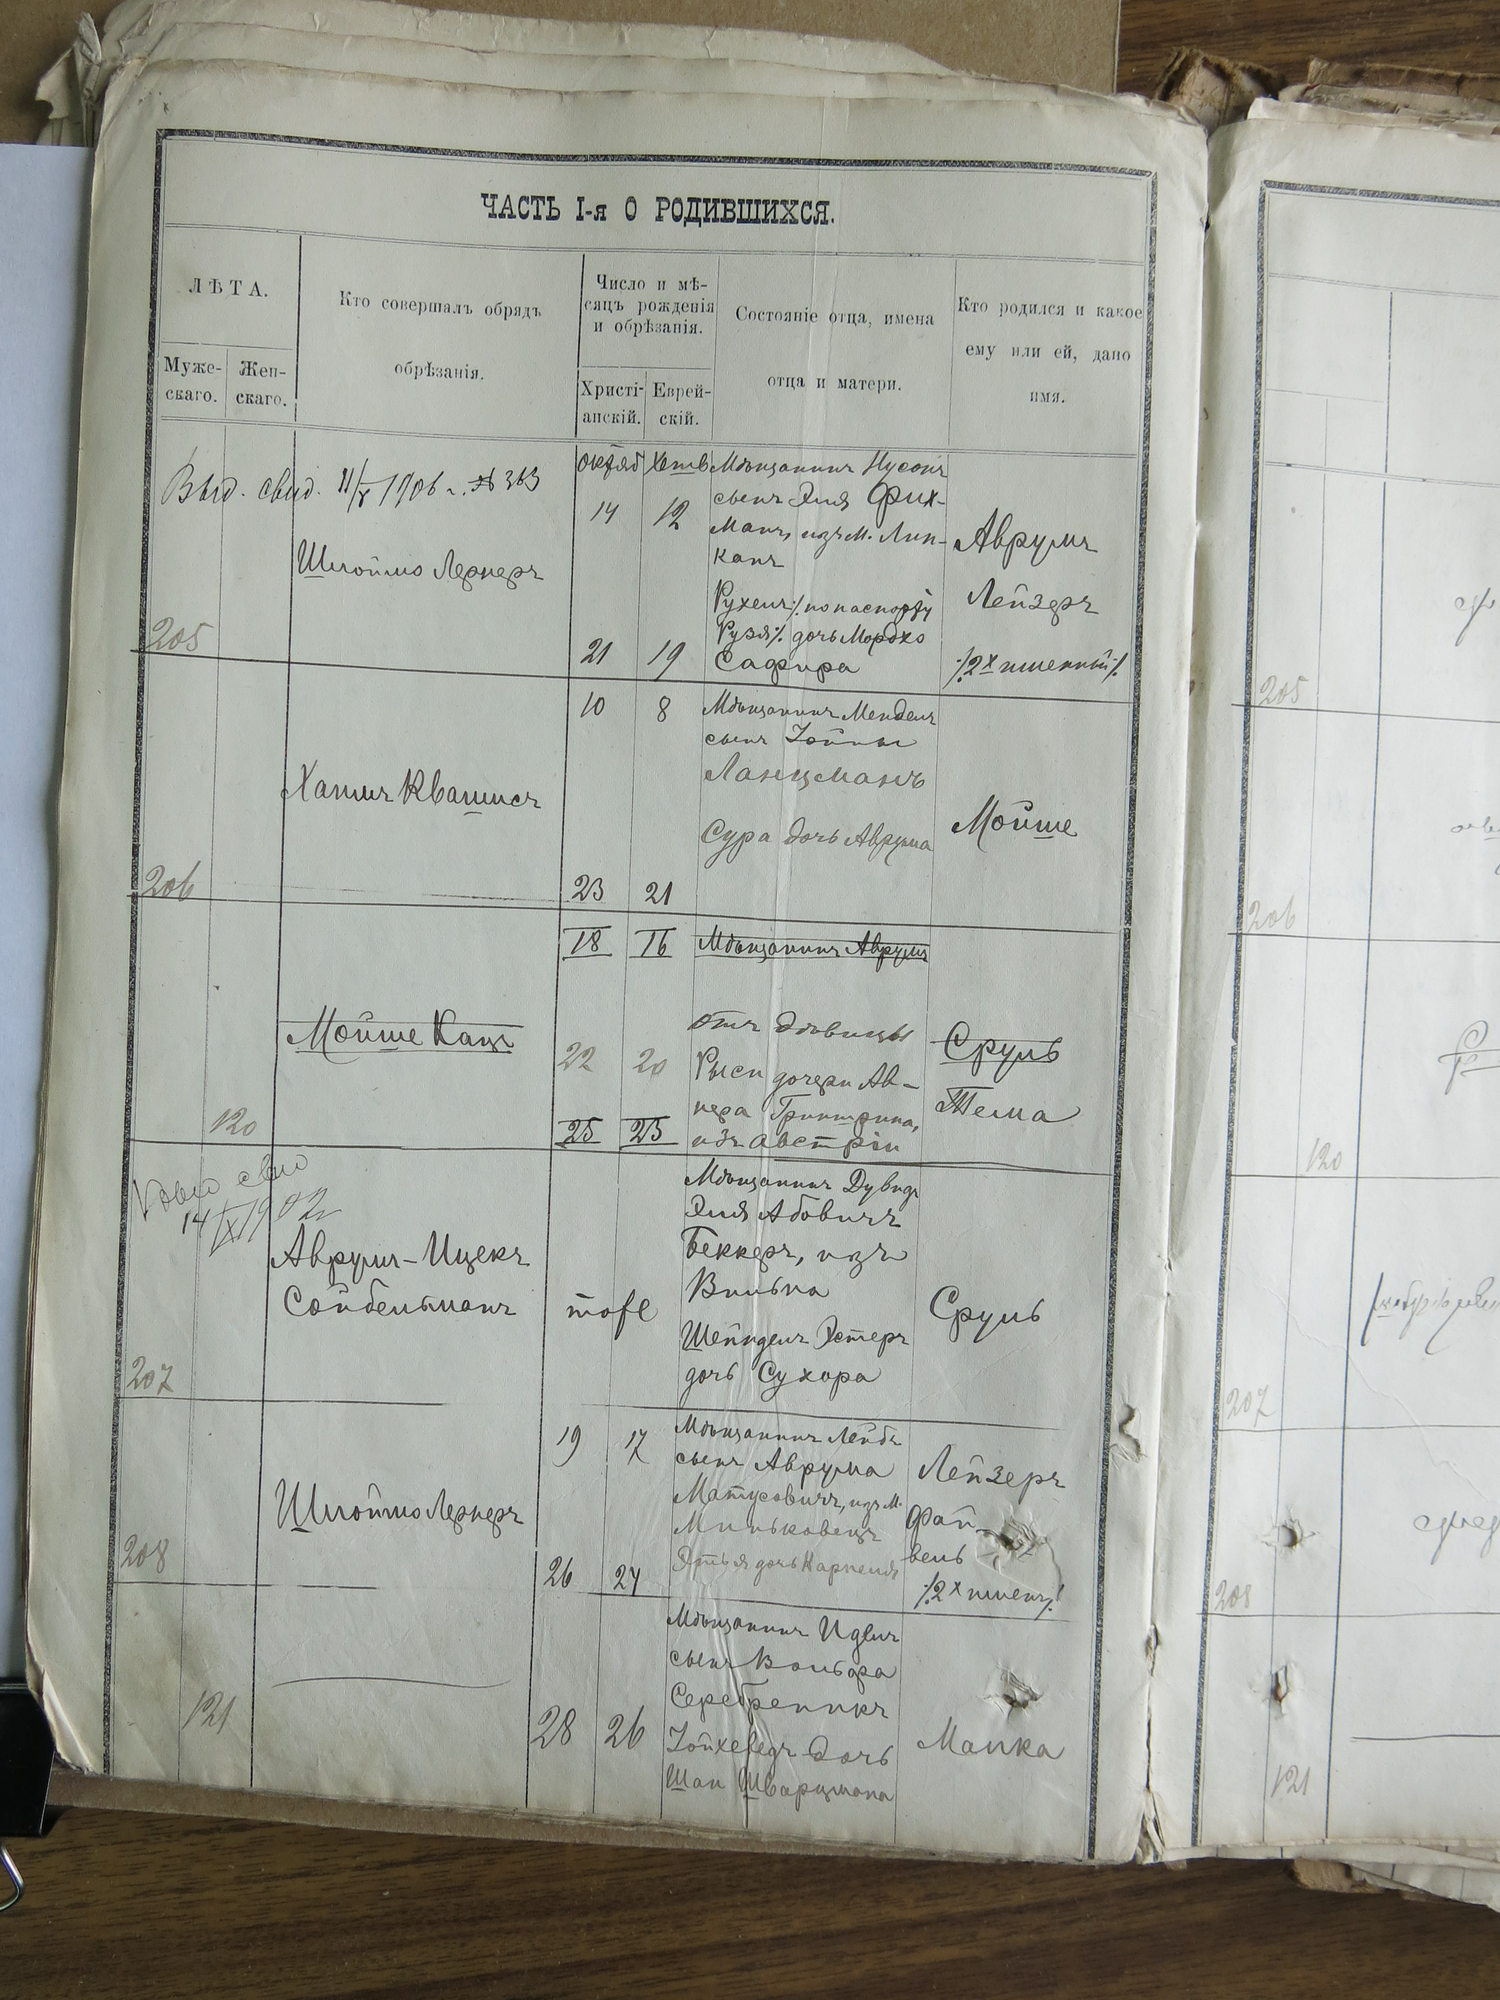 ЧАСТЬ I-я О РОДИВШИХСЯ.
ЛѢТА.
Муже-
скаго.
Жен-
скаго.
Кто совершалъ обрядъ
обрѣзанія.
Число и мѣ-
сяцъ рожденія
и обрѣзанія.
Христі-
анскій.
Еврей-
скій.
Состояніе отца, имена
отца и матери.
Кто родился и какое
ему или ей, дано
имя.
Выд. свид. 11/X 1906 г. № 363
205
Шлоймо Лернеръ
Октяб
14
21
Хешв
12
19
Мѣщанинъ Нусонъ
сынъ Эля Фих-
манъ, изъ м. Лип-
канъ
Рухель ./. по паспорту
Рузя ./. дочь Мордко
Сафира
Аврумъ
Лейзеръ
./. 2х именный ./.
206
Хаимъ Квашисъ
10
23
8
21
Мѣщанинъ Мендель
сынъ Іойны
Ланцманъ
Сура дочь Аврума
Мойше
120
Мойше Кацъ
18
22
25
16
20
23
Мѣщанинъ Аврумъ
отъ дѣвицы
Рыси дочери Ав-
нера
изъ Австріи
Сруль
Тема
свид
14/IX 1902
207
Аврумъ-Ицекъ
Сойбельманъ
тоже
Мѣщанинъ Дувидъ
Эля Абовичъ
Беккеръ, изъ
Вильна
Шейндель Эстеръ
дочь Сухара
Сруль
208
Шлоймо Лернеръ
19
26
17
24
Мѣщанинъ Лейбъ
сынъ Аврума
Матусовичъ, изъ м.
Миньковецъ
Этья дочь Карпеля
Лейзеръ
Фай-
вель
./. 2х имен ./.
121
28
26
Мѣщанинъ Идель
сынъ Вольфа
Серебренникъ
Іойхеведъ дочь
Шаи Шварцмана
Малка
205
206
120
207
208
121